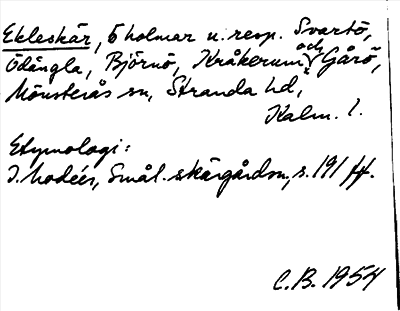 Ekleskär, 6 holmar u. resp. Svartö,
Ödängla, Björnö, Kråkerum och Gårö,
Mönsterås sn, Stranda hd,
Kalm. l.
Etymologi:
I. Modéer, Smål. skärgårdsn., s. 191 ff.
C.B. 1954